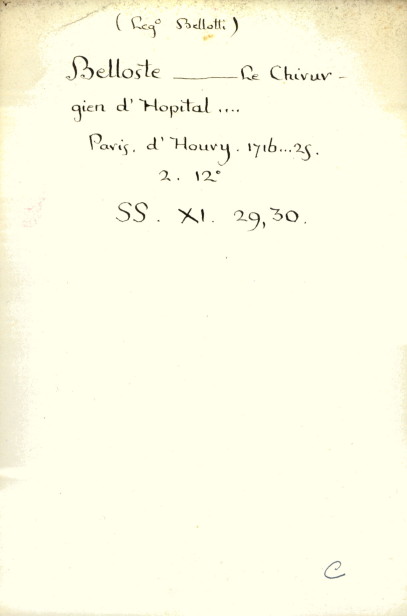 (Leg° Bellotti)
Belloste ——— Le Chirur-
gien d'Hopital ....
Paris. d'Houry. 1716...25.
2. 12°
SS. XI. 29,30.
C